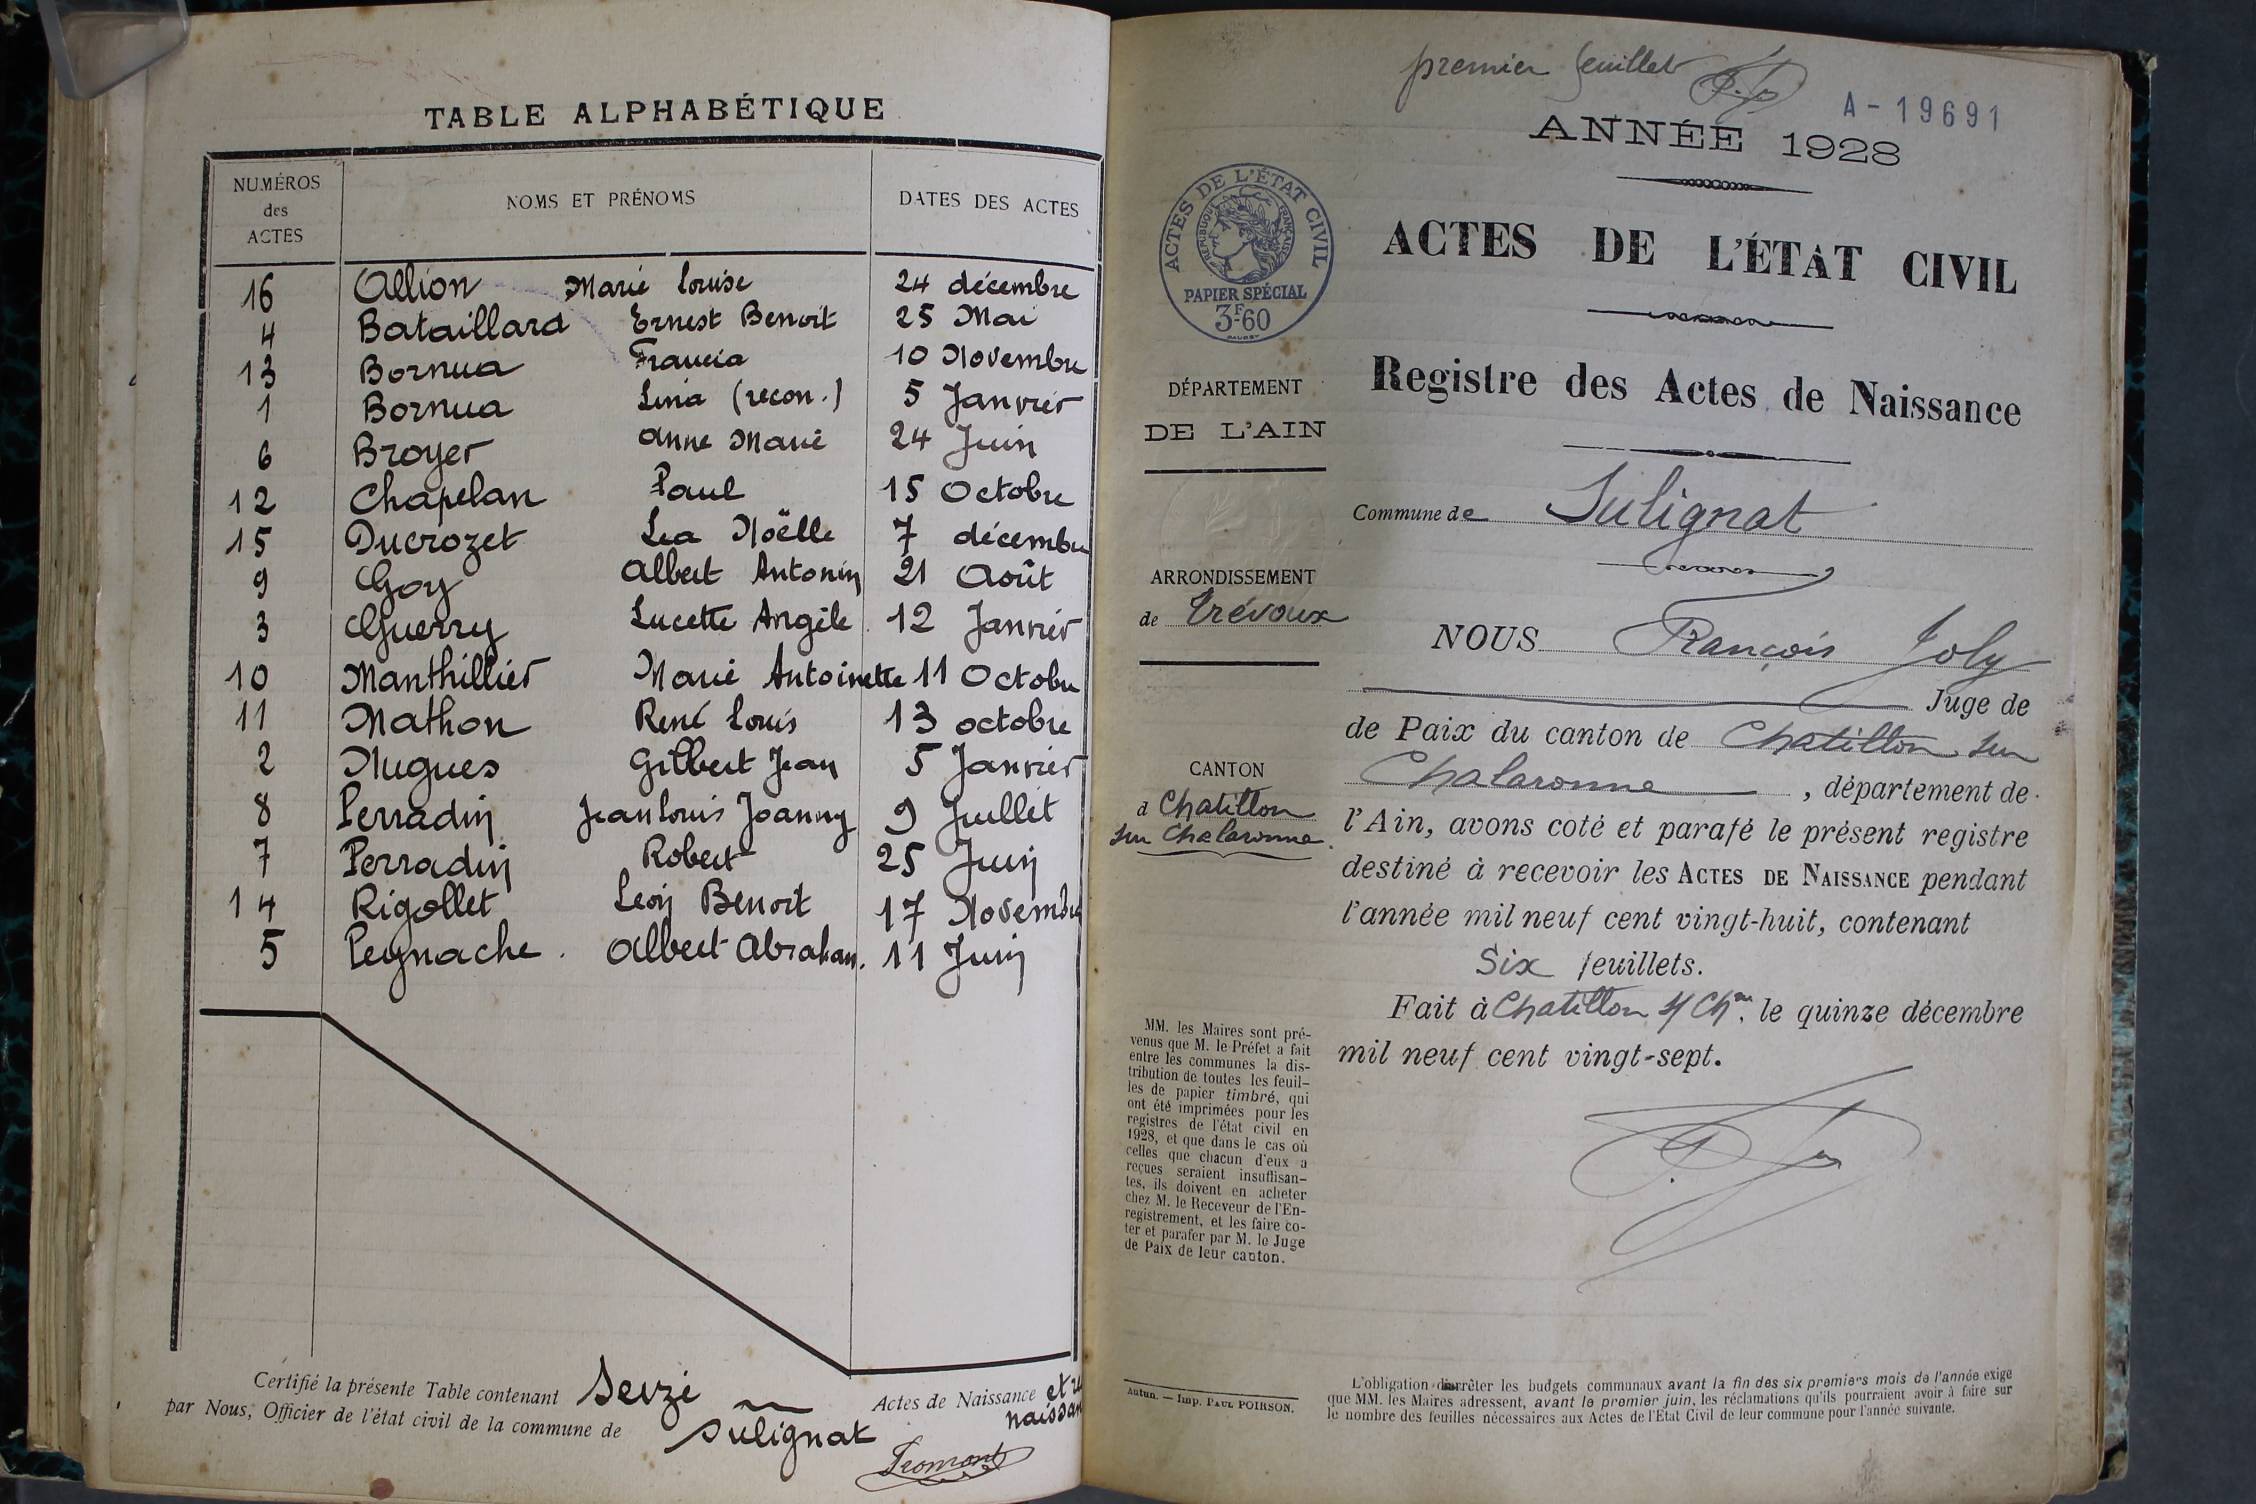 TABLE ALPHABÉTIQUE
NUMÉROS des ACTES NOMS ET PRÉNOMS DATES DES ACTES
16 Allion Marie Louise 24 décembre
4 Bataillard Ernest Benoit 25 Mai
13 Bornua Francia 10 Novembre
1 Bornua Lina (recon.) 5 Janvier
6 Broyer Anne Marie 24 Juin
12 Chapelan Paul 15 Octobre
15 Ducrozet Lea Noëlle 7 décembre
9 Goy Albert Antonin 21 Août
3 Guerry Lucette Angèle 12 Janvier
10 Manthillier Marie Antoinette 11 Octobre
11 Mathon René Louis 13 octobre
2 Nugues Gilbert Jean 5 Janvier
8 Perradin Jean Louis Joanny 9 Juillet
7 Perradin Robert 25 Juin
14 Rigollet Leon Benoit 17 Novembre
5 Peynache. Albert Abraham. 11 Juin
Certifié la présente Table contenant Seize Actes de Naissance et
naissan
par Nous, Officier de l'état civil de la commune de Sulignat
Fromont
premier feuillet
A-19691
ANNÉE 1928
ACTES DE L'ÉTAT CIVIL
RÉPUBLIQUE FRANÇAISE
PAPIER SPÉCIAL
3F-60
ACTES DE L'ÉTAT CIVIL
Registre des Actes de Naissance
DÉPARTEMENT
DE L'AIN
Commune de Sulignat
ARRONDISSEMENT
de Trévoux
NOUS François Joly
Juge de
de Paix du canton de Chatillon sur
Chalaronne, département de
CANTON
d Chatillon
sur Chalaronne
l'Ain, avons coté et parafé le présent registre
destiné à recevoir les ACTES DE NAISSANCE pendant
l'année mil neuf cent vingt-huit, contenant
Six feuillets.
Fait à Chatillon s/ Chne, le quinze décembre
mil neuf cent vingt-sept.
MM. les Maires sont pré-
venus que M. le Préfet a fait
entre les communes la dis-
tribution de toutes les feuil-
les de papier timbré, qui
ont été imprimées pour les
registres de l'état civil en
1928, et que dans le cas où
celles que chacun d'eux a
reçues seraient insuffisan-
tes, ils doivent en acheter
chez M. le Receveur de l'En-
registrement, et les faire co-
ter et parafer par M. le Juge
de Paix de leur canton.
Autun. — Imp. PAUL POIRSON.
L'obligation d'arrêter les budgets communaux avant la fin des six premiers mois de l'année exige
que MM. les Maires adressent, avant le premier juin, les réclamations qu'ils pourraient avoir à faire sur
le nombre des feuilles nécessaires aux Actes de l'État Civil de leur commune pour l'année suivante.